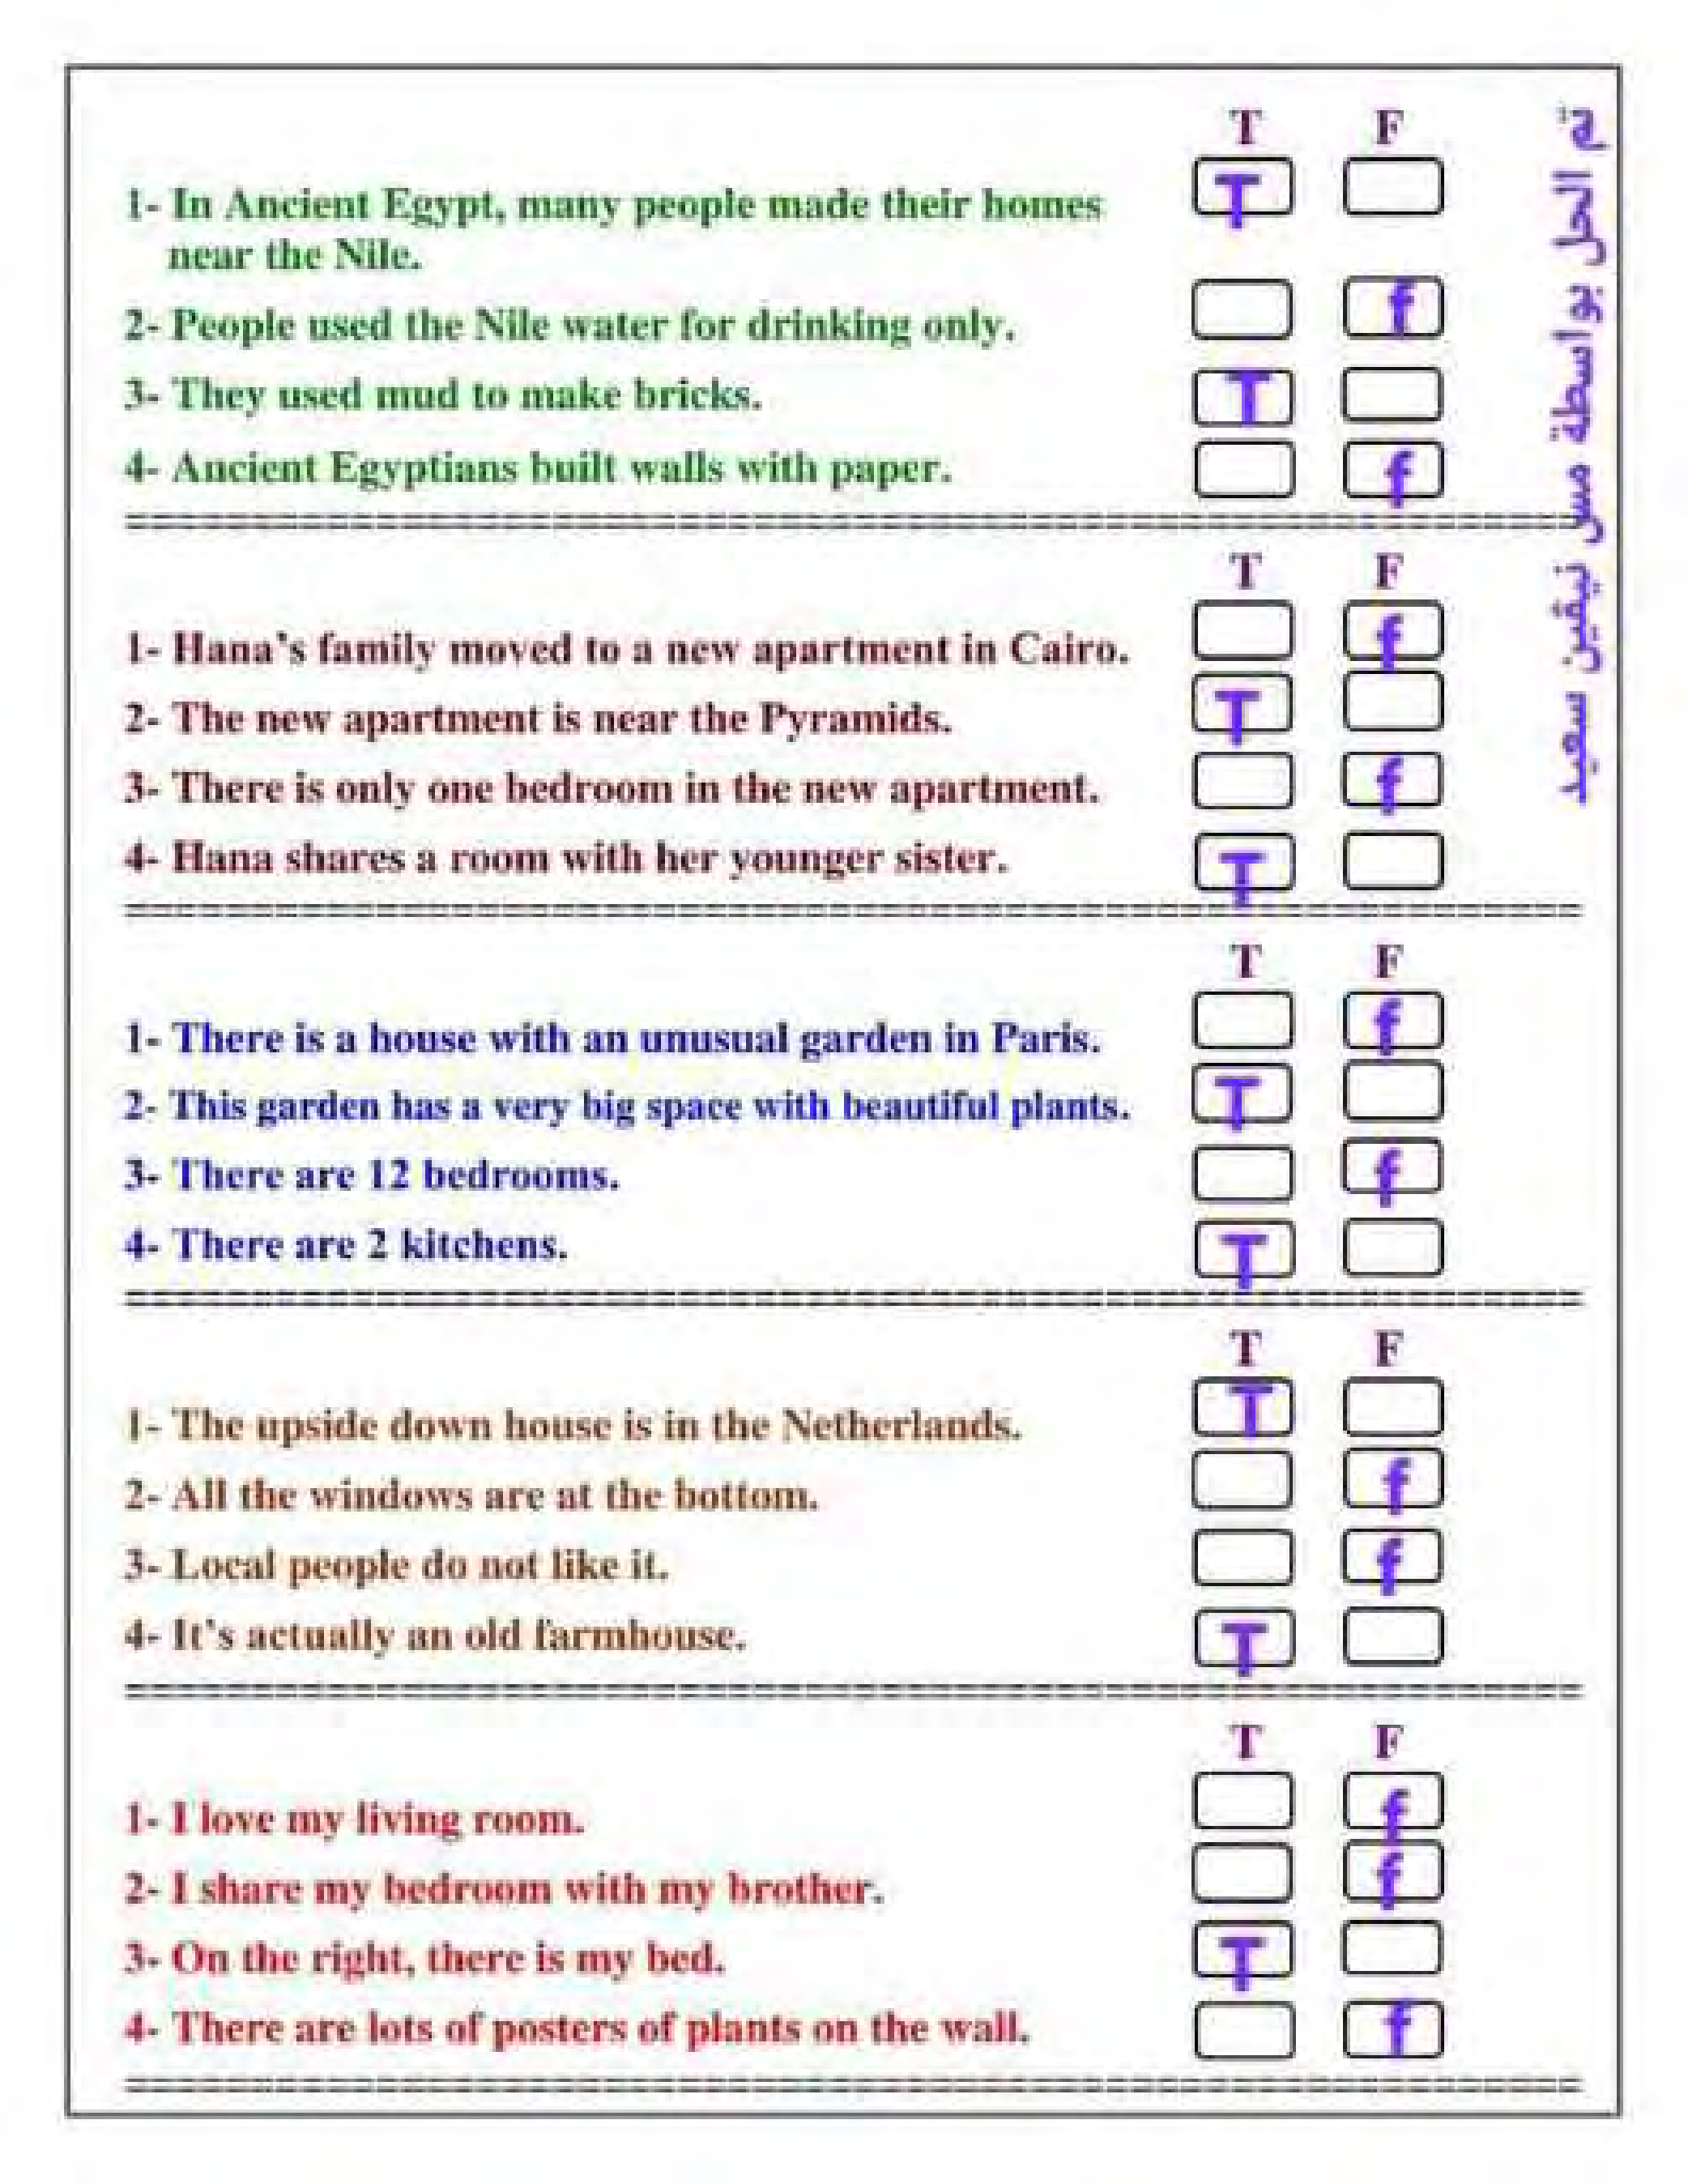 T F
1- In Ancient Egypt, many people made their homes T
near the Nile.
2- People used the Nile water for drinking only. f
3- They used mud to make bricks. T
4- Ancient Egyptians built walls with paper. f
T F
1- Hana's family moved to a new apartment in Cairo. f
2- The new apartment is near the Pyramids. T
3- There is only one bedroom in the new apartment. f
4- Hana shares a room with her younger sister. T
T F
1- There is a house with an unusual garden in Paris. f
2- This garden has a very big space with beautiful plants. T
3- There are 12 bedrooms. f
4- There are 2 kitchens. T
T F
1- The upside down house is in the Netherlands. T
2- All the windows are at the bottom. f
3- Local people do not like it. f
4- It's actually an old farmhouse. T
T F
1- I love my living room. f
2- I share my bedroom with my brother. f
3- On the right, there is my bed. T
4- There are lots of posters of plants on the wall. f
تم الحل بواسطة مس نيڤين سعيد